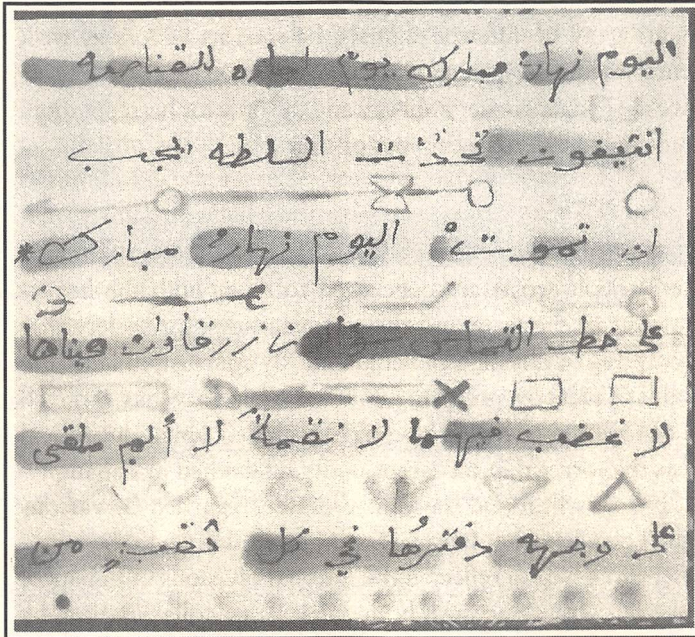 اليوم نهارٌ مبارك يوم اجازه للقناصه
انتيفون تحدّت السلطه
ان تموتْ اليوم نهارٌ مبارك*
على خط التماس زرقاوان عيناها
لا غضب فيهما لا نقمةً لا ألم ملقى
على وجهه دفترُها في كل من